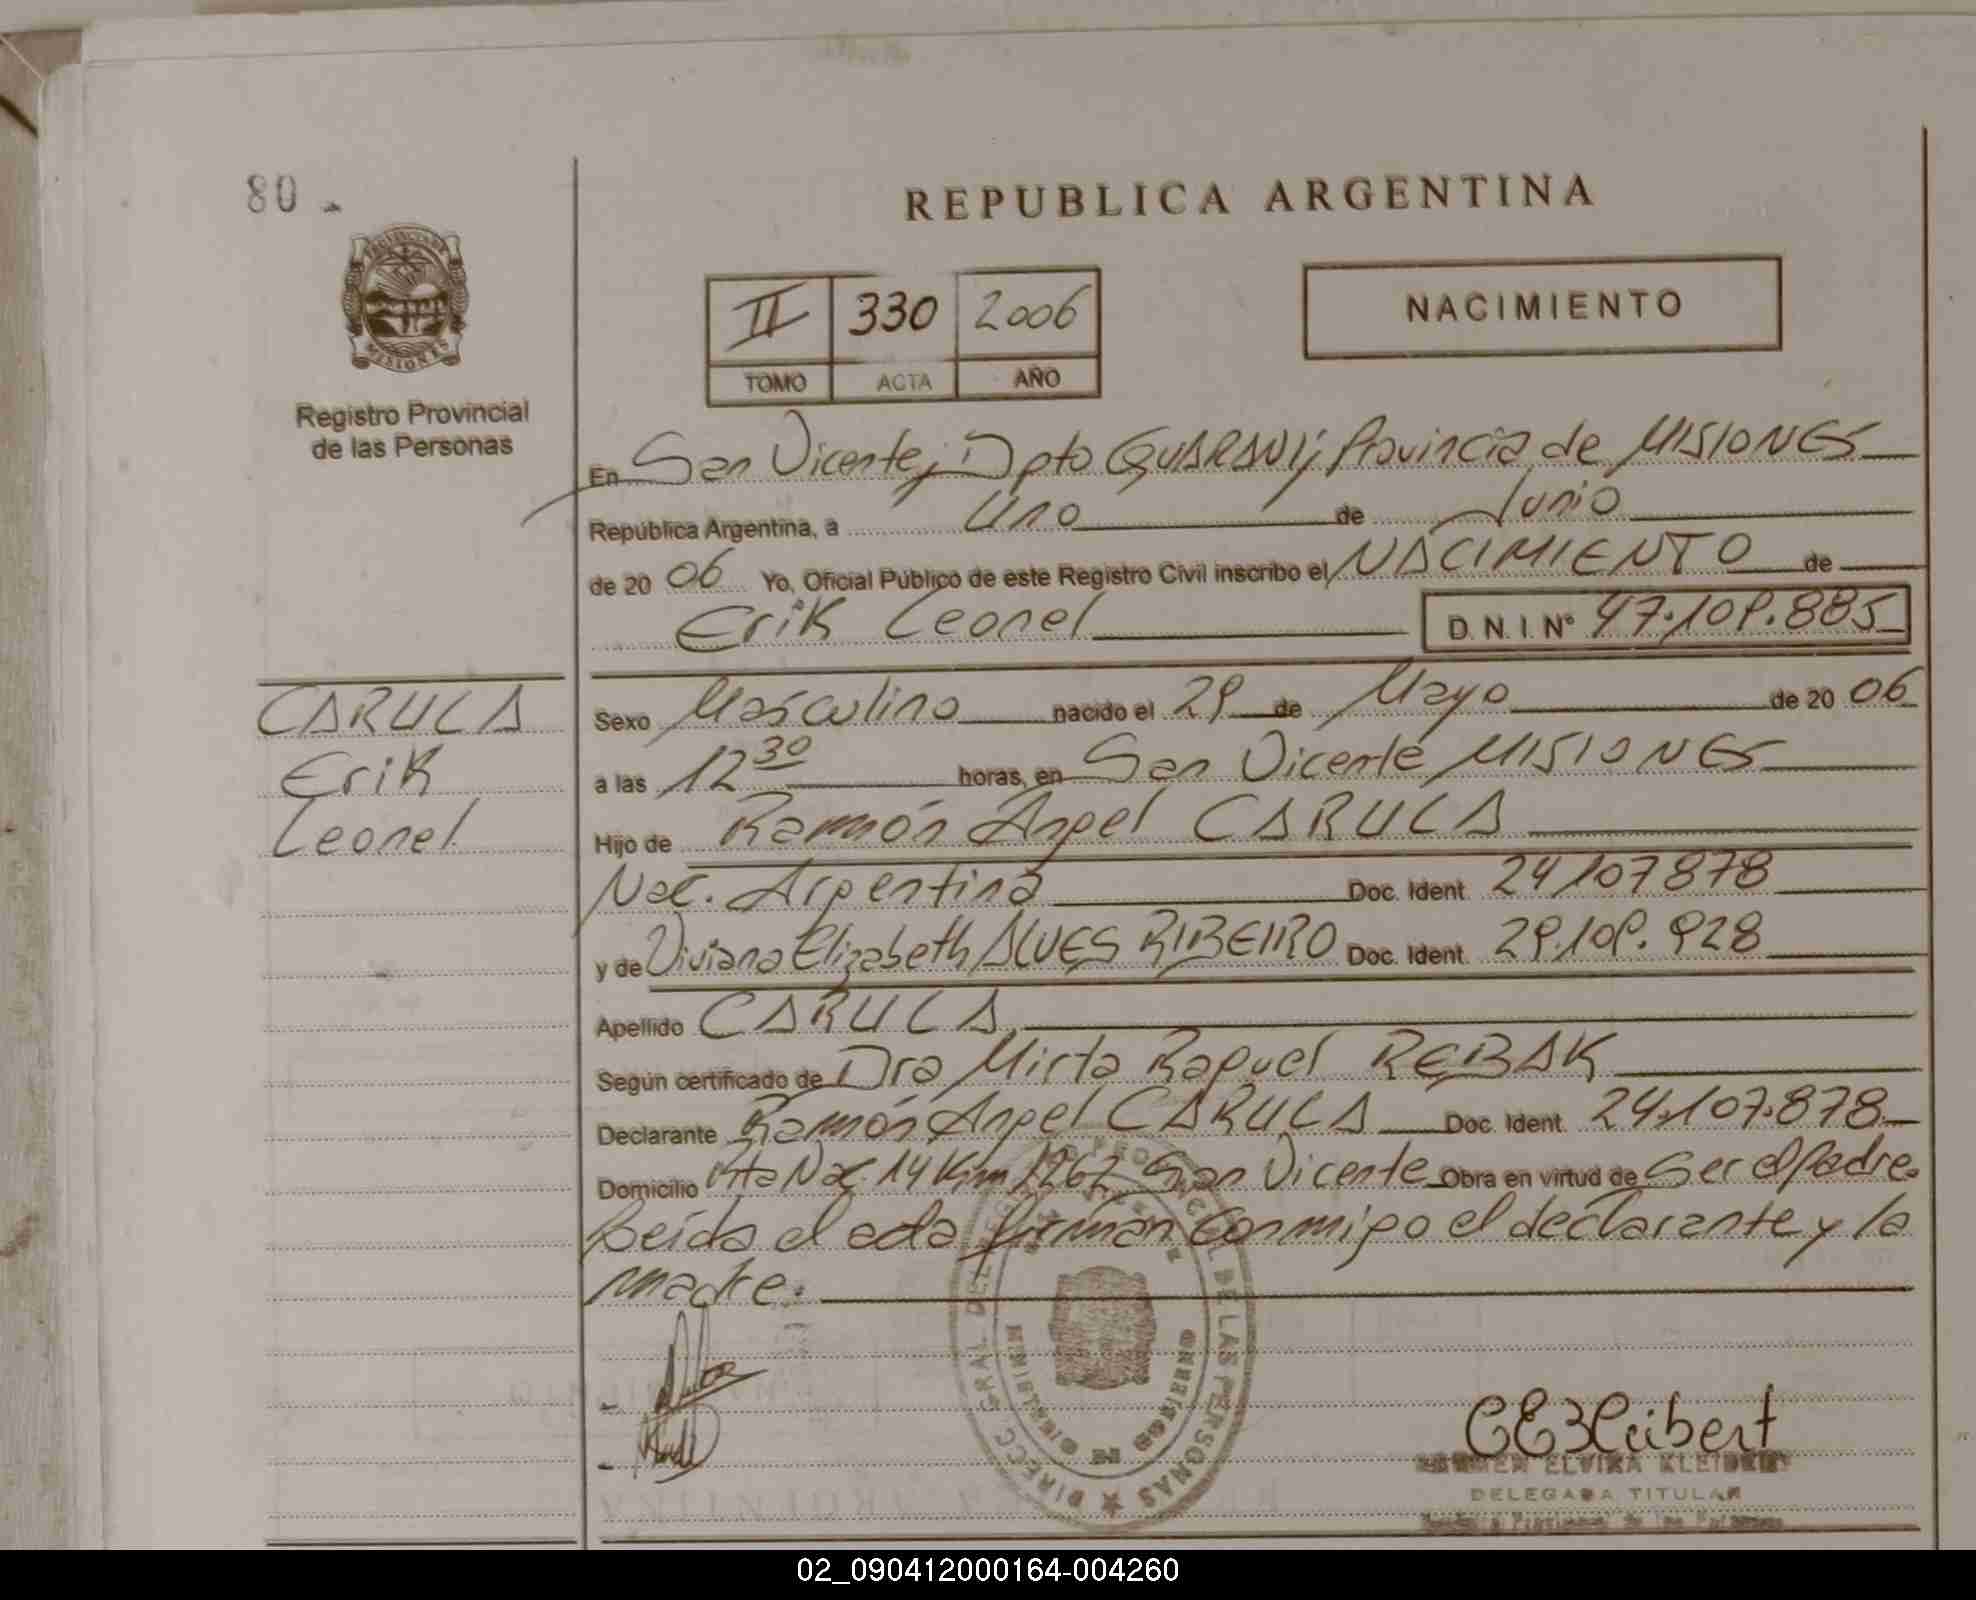 80
REPUBLICA ARGENTINA
PROVINCIA DE MISIONES
II 330 2006
TOMO ACTA AÑO
NACIMIENTO
Registro Provincial
de las Personas
En San Vicente, Dpto GUARANI, Provincia de MISIONES
República Argentina, a Uno de Junio
de 20 06 Yo, Oficial Público de este Registro Civil inscribo el NACIMIENTO de
Erik Leonel D.N.I. Nº 47.109.885
CARULA
Erik
Leonel
Sexo Masculino nacido el 29 de Mayo de 20 06
a las 12 30 horas, en San Vicente MISIONES
Hijo de Ramón Angel CARULA
Nac. Argentina Doc. Ident. 24107878
y de Viviana Elizabeth ALVES RIBEIRO Doc. Ident. 29.109.928
Apellido CARULA
Según certificado de Dra Mirta Raquel REBAK
Declarante Ramón Angel CARULA Doc. Ident. 24.107.878
Domicilio Rta Nac. 14 Km 1262 San Vicente Obra en virtud de Ser el padre.
Leída el acta firman conmigo el declarante y la
madre.
DIRECC. GRAL. DEL DE LAS PERSONAS
CEKleibert
ELVIRA
DELEGADA TITULAR
02_090412000164-004260